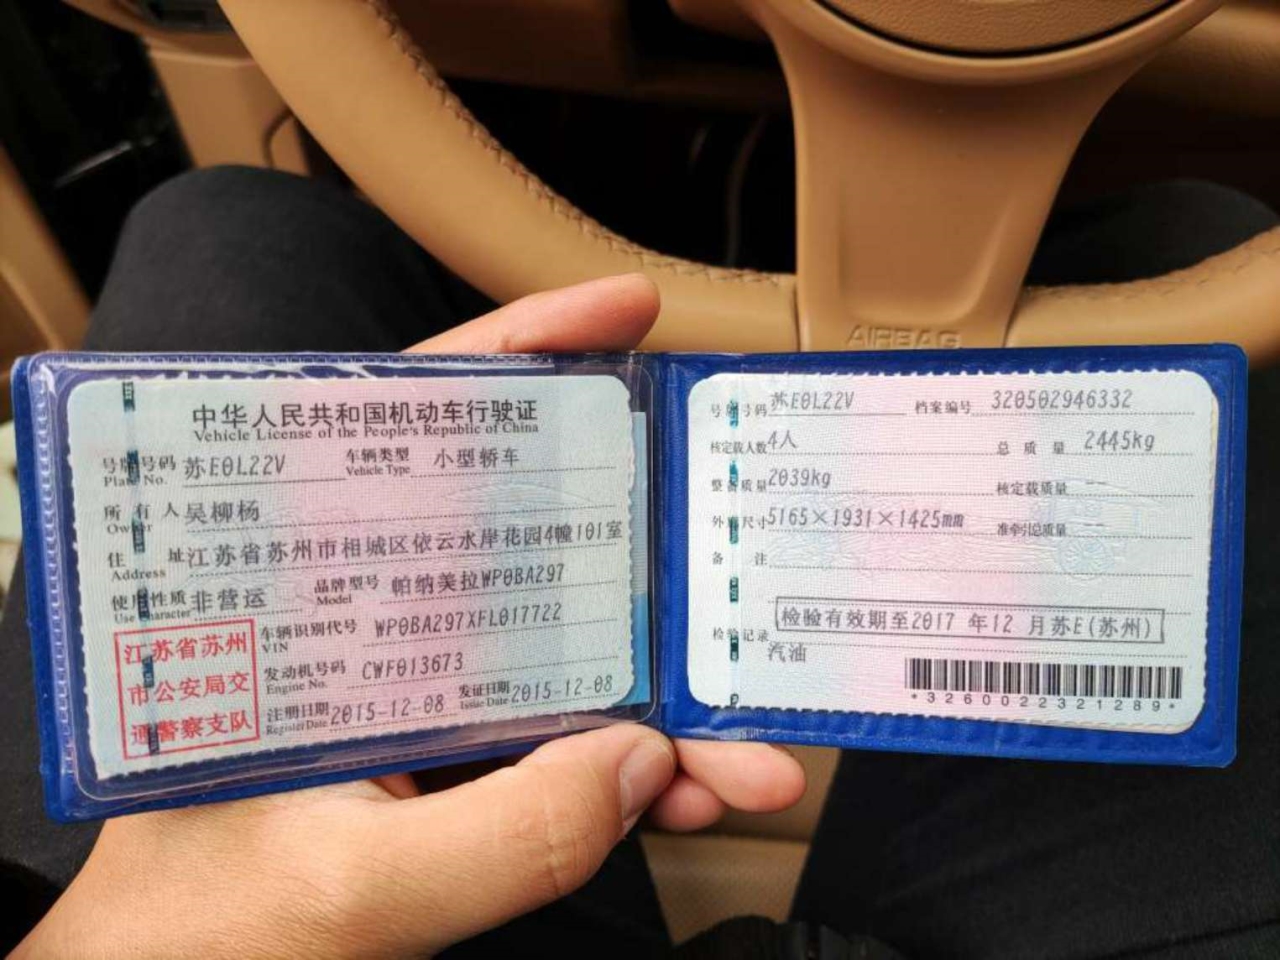 AIRBAG
中华人民共和国机动车行驶证
Vehicle License of the People's Republic of China
号牌号码 苏E0L22V 车辆类型 小型轿车
Plate No. Vehicle Type
所有人 吴柳杨
Owner
住址 江苏省苏州市相城区依云水岸花园4幢101室
Address
使用性质 非营运 品牌型号 帕纳美拉WP0BA297
Use Character Model
车辆识别代号 WP0BA297XFL017722
VIN
发动机号码 CWF013673
Engine No.
注册日期 2015-12-08 发证日期 2015-12-08
Register Date Issue Date
江苏省苏州
市公安局交
通警察支队
号牌号码 苏E0L22V 档案编号 320502946332
核定载人数 4人 总质量 2445kg
整备质量 2039kg 核定载质量
外廓尺寸 5165×1931×1425mm 准牵引总质量
备注
检验有效期至2017 年12 月苏E(苏州)
检验记录
汽油
*3260022321289*